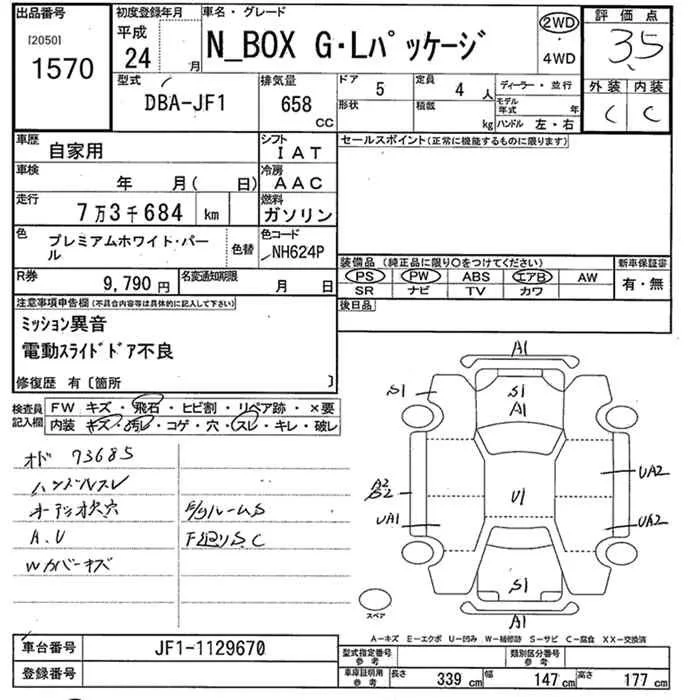 出品番号 初度登録年月 車名・グレード 2WD 評価点
[2050] 平成 4WD 3.5
1570 24 月 N_BOX G・Lパッケージ 外装 内装
C C
型式 排気量 ドア 定員 ディーラー・並行
DBA-JF1 658 cc 5 4 人
形状 積載 kg モデル年式 年
ハンドル 左・右
車歴 自家用 シフト IAT セールスポイント(正常に機能するものに限ります)
車検 年 月( 日) 冷房 AAC
走行 7万3千684 km 燃料 ガソリン
色 プレミアムホワイト・パール 色替 色コード NH624P
装備品 (純正品に限り○をつけてください) 新車保証書
PS PW ABS エアB AW 有・無
SR ナビ TV カワ
R券 9,790 円 名変通知期限 月 日
後日品
注意事項申告欄(不具合内容等は具体的に記入して下さい)
ミッション異音
電動スライドドドア不良
修復歴 有〔箇所 〕
検査員記入欄 FW キズ・飛石・ヒビ割・リペア跡・×要
内装 キズ・汚レ・コゲ・穴・スレ・キレ・破レ
オド 73685
ハンドルスレ
A.U
Wカバーキズ
A1
S1 S1
A1
A2
S2 U1 UA2
UA1 UA2
S1
スペア A1
A-キズ E-エクボ U-凹み W-補修跡 S-サビ C-腐食 XX-交換済
車台番号 JF1-1129670 型式指定番号 参考 類別区分番号 参考
登録番号 車庫証明用 参考 長さ 339 cm 幅 147 cm 高さ 177 cm